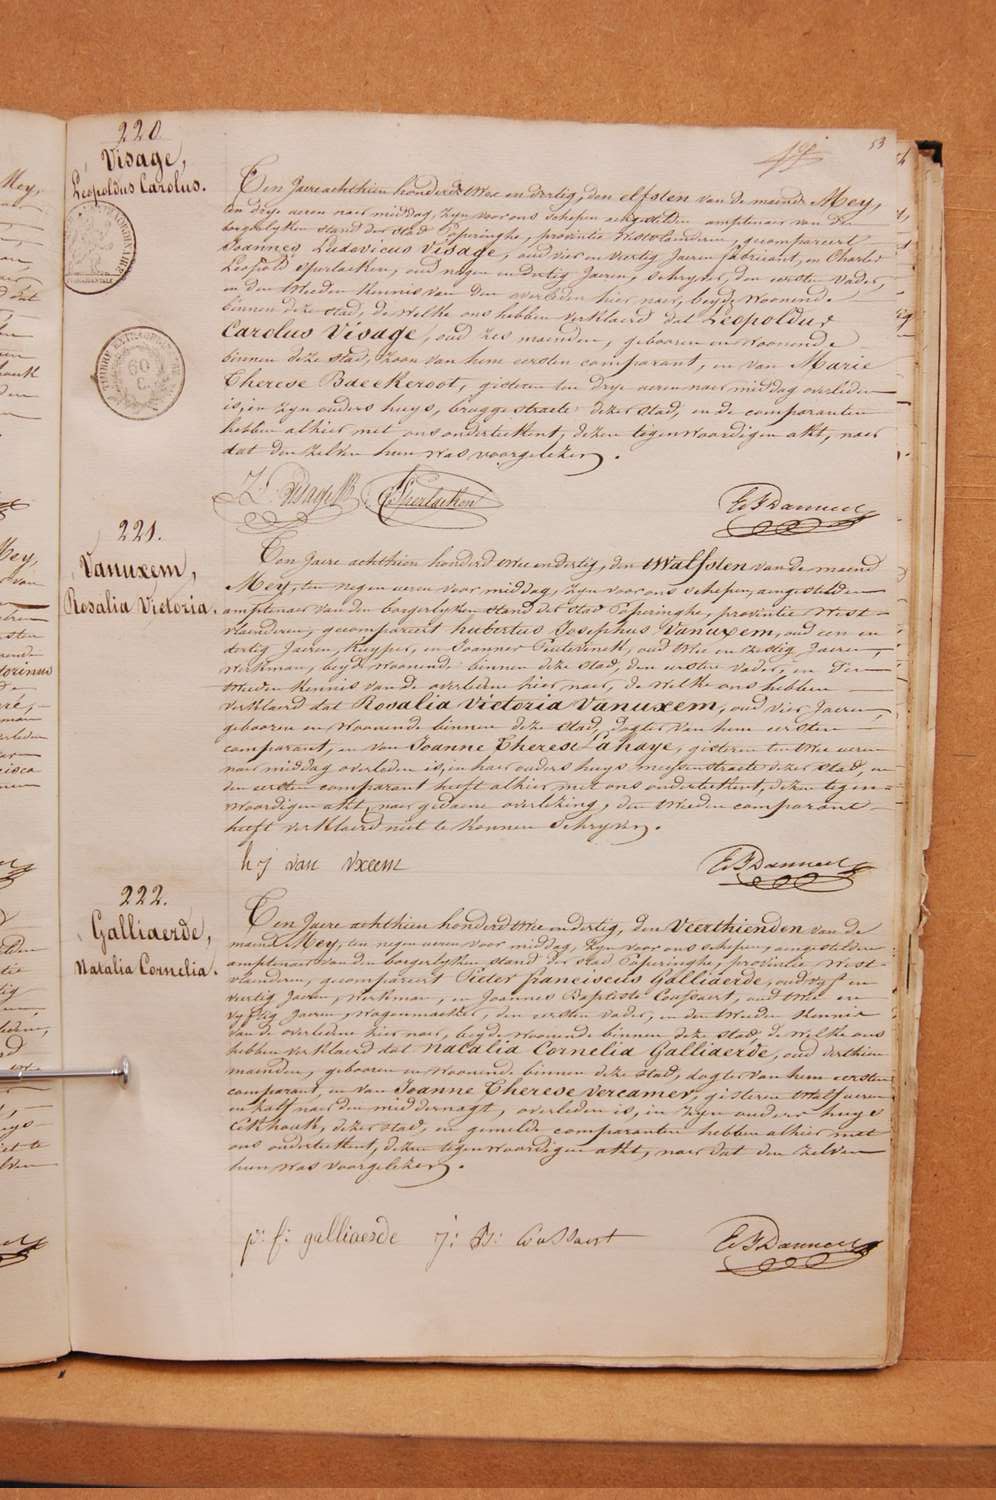 53
220
Visage,
Leopoldus Carolus.
Ten Jaere achthien honderd twee en dertig, den elfsten van de maend Mey,
ten drye ueren naer middag, zyn voor ons schepen aengestelden amptenaer van den
borgerlyken stand der stad Poperinghe, provintie Westvlaenderen, gecompareert
Joannes Ludovicus Visage, oud vier en veertig Jaeren fabricant, en Charles
Leopold Sperlaeken, oud negen en dertig Jaeren, schryver, den eersten vader,
en den tweeden kennis van den overleden hier naer, beyde woonende
binnen deze stad, de welke ons hebben verklaerd dat Leopoldus
Carolus Visage, oud zes maenden, gebooren en woonende
binnen deze stad, zoon van hem eersten comparant, en van Marie
Therese Baeckeroot, gisteren ten drye ueren naer middag overleden
is, in zyn ouders huys, brugge straete dezer stad, en de comparanten
hebben alhier met ons onderteekent, dezen tegenwoordigen akt, naer
dat den zelven hun was voorgelezen.
221.
Vanuxem,
Rosalia Victoria.
Ten Jaere achthien honderd twee en dertig, den twalfsten van de maend
Mey, ten negen ueren voor middag, zyn voor ons schepen, aengestelden
amptenaer van den borgerlyken stand der stad Poperinghe, provintie West-
vlaenderen, gecompareert hubertus Josephus Vanuxem, oud een en
dertig Jaeren, kuyper, en Joannes oud twee en zestig Jaeren,
werkman, beyde woonende binnen deze stad, den eersten vader, en den
tweeden kennis van de overledene hier naer, de welke ons hebben
verklaerd dat Rosalia Victoria Vanuxem, oud vier Jaeren,
gebooren en woonende binnen deze stad, dogter van hem eersten
comparant, en van Joanne Therese Lahaye, gisteren ten twee ueren
naer middag overleden is, in haer ouders huys straete dezer stad, en
den eersten comparant heeft alhier met ons onderteekent, dezen tegen-
woordigen akt, naer gedaene overlezing, den tweeden comparant
heeft verklaerd niet te konnen schryven.
h j van vxeem
222.
Galliaerde,
Natalia Cornelia.
Ten Jaere achthien honderd twee en dertig, den Veerthienden van de
maend Mey, ten negen ueren voor middag, zyn voor ons schepen, aengestelden
amptenaer van den borgerlyken stand der stad Poperinghe, provintie West-
vlaenderen, gecompareert Pieter franciscus Galliaerde, oud vyf en
veertig Jaeren, werkman, en Joannes Baptiste Coassaert, oud twee en
vyftig Jaeren, wagenmaeker, den eersten vader, en den tweeden kennis
van de overledene hier naer, beyde woonende binnen deze stad, de welke ons
hebben verklaerd dat Natalia Cornelia Galliaerde, oud derthien
maenden, gebooren en woonende binnen deze stad, dogter van hem eersten
comparant, en van Joanne Therese Vercamer, gisteren twalf ueren
en half naer den middernagt, overleden is, in zyn ouders huys
Cekhouk, dezer stad, en gemelde comparanten hebben alhier met
ons onderteekent, dezen tegenwoordigen akt, naer dat den zelven
hun was voorgelezen.
p: f: galliaerde j: B: Coassaert